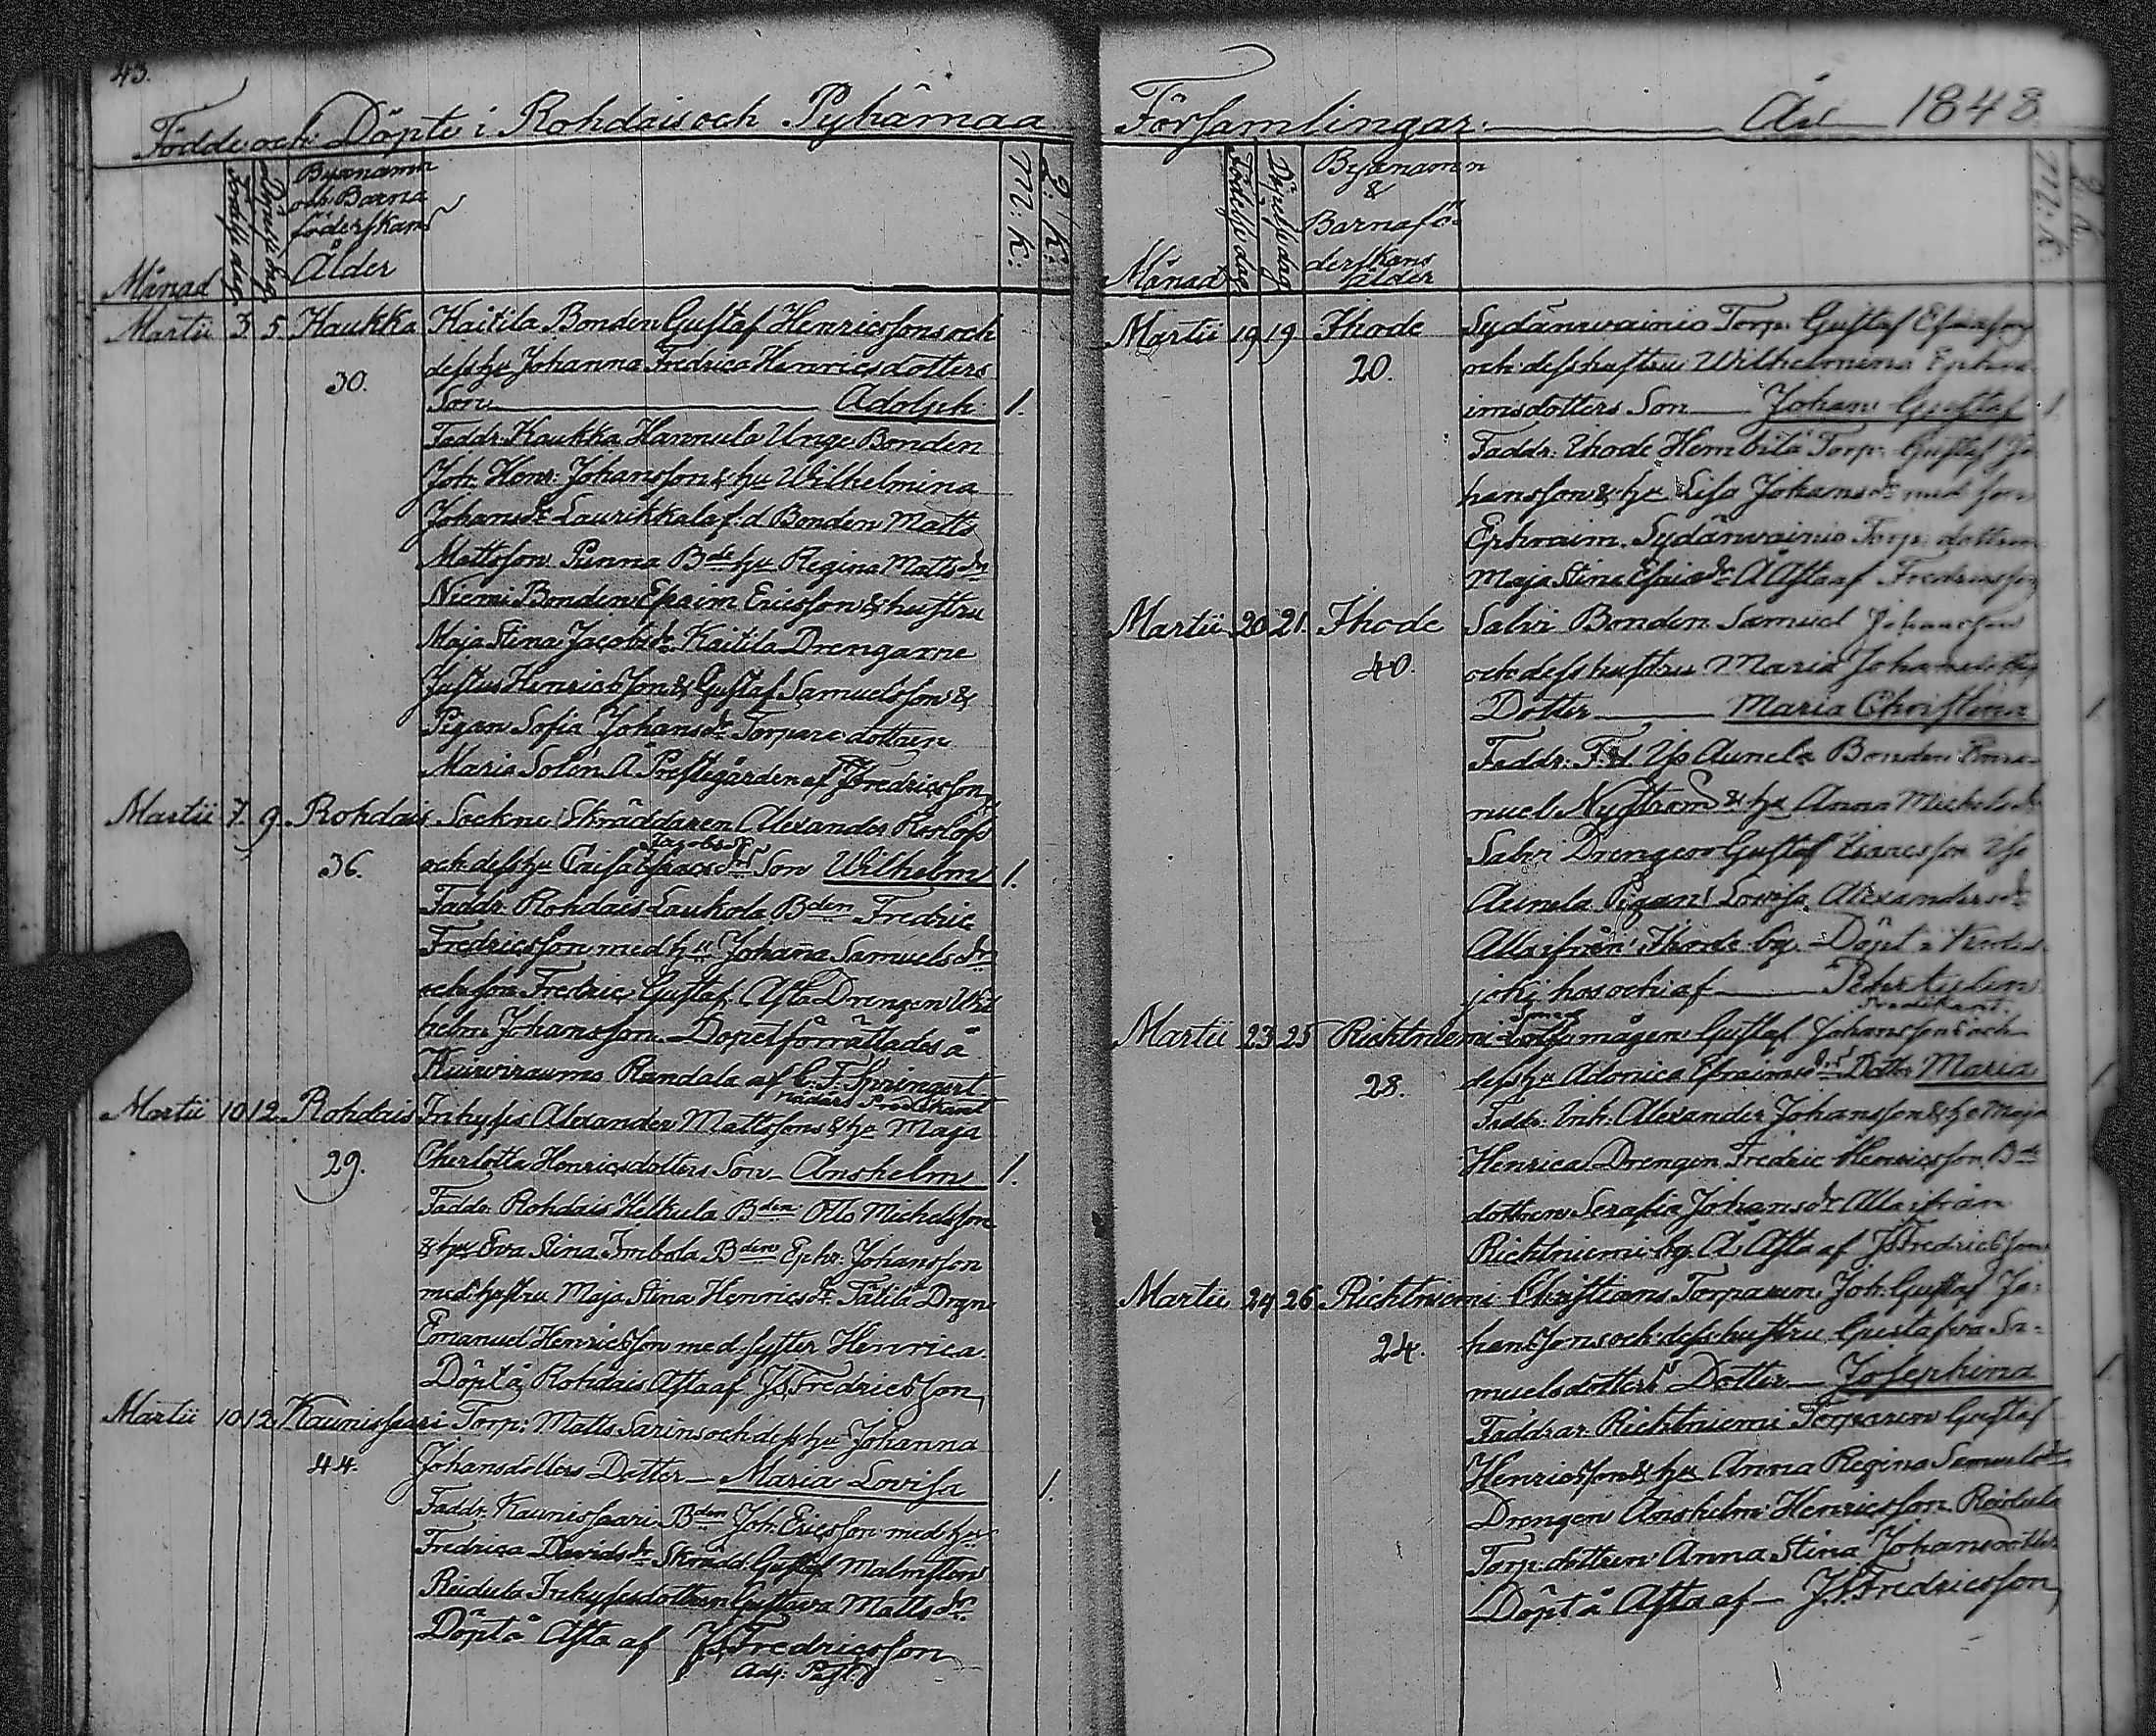 43.
Födde och Döpte i Rohdais och Pyhämaa
Månad
Födelse dag
Döpelse dag
Byanamn
och Barna
föderskans
Ålder
M: K:
Q: K:
Martii 3 5 Kaukka Kaitila Bonden Gustaf Henricssons och
30. dess hu Johanna Fredrica Henricsdotters
Son Adolph 1.
Faddr. Kaukka Hannula Unge Bonden
Joh. Henr: Johansson & hu Wilhelmina
Johansdr Laurikkala f.d Bonden Matts
Mattsson Pinna Bde hu Regina Mattsdr
Niemi Bonden Efraim Ericsson & hustru
Maja Stina Jacobsdr Kaitila Drengarne
Justus Henricsson & Gustaf Samuelsson &
Pigan Sofia Johansdr Torpare dottren
Maria Solen Å Prestgården af JFredricsson
Martii 7. 9. Rohdais Sockne Skräddaren Alexander
36. och dess hu Caisa Jacobsdr Son Wilhelm 1.
Faddr. Rohdais Laukola Bden Fredric
Fredricsson med hu Johanna Samuelsdr
och son Fredric Gustaf. Asta Drengen Wil
helm Johansson. Dopet förrättades å
Randala af C. F. Springert
Predikant
Martii 10 12 Rohdais Inhyses Alexander Mattssons & hu Maja
29. Cherlotta Henricsdotters Son Anshelm 1.
Faddr. Rohdais Kelkula Bden Otto Michelsson
& hu Eva Stina Imbola Bden Ephr. Johansson
med hustru Maja Stina Henricsdr Tätilä Drgn
Emanuel Henricsson med syster Henrica.
Döpt å Rohdais Asta af JFredricsson
Martii 10 12 Kaunissaari Torp: Matts Sarins och dess hu Johanna
44. Johansdotters Dotter Maria Lovisa 1.
Faddr. Kaunissaari Bden Joh. Ericsson med hu
Fredrica Davidsdr Skrädd: Gustaf Malmsten
Reidula Inhysesdottren Gustava Mattsdr
Döpt å Asta af JFredricsson
Adj: Past.
Församlingar. År 1848
Månad
Födelse dag
Döpelse dag
Byanamn
&
Barnafö
derskans
ålder
M: K.
Q. K.
Martii 19 19. Ihode Sydänwainio Torp. Gustaf Esaiasson
20. och dess hustru Wilhelmina Ephra
imsdotters Son Johan Gustaf 1
Faddr. Ihode Hembilä Torp. Gustaf Jo
hansson & hu Lisa Johansdr med son
Ephraim. Sydänwainio Torp. dottren
Maja Stina Esaiedr Å Asta af Fredricsson
Martii 20 21. Ihode Salvi Bonden Samuel Johansson
40. och dess hustru Maria Johansdotters
Dotter Maria Christina 1
Faddr. Aunela Bonden Ema-
nuel Nyström & hu Anna Michelsdr
Salvi Drengen Gustaf Isaacsson
Aunela Pigan Lovisa Alexandersdr
Alla ifrån Ihode by. Döpt i
joki hos och af
Predikant.
Martii 23 25 Richtniemi mågen Gustaf Johanssons och
28. dess hu Adonica Efraimsdrs Dotter Maria 1
Faddr. Inh: Alexander Johansson & hu Maja
Henrica Drengen Fredric Henricsson, Bde
dottren Serafia Johansdr Alla ifrån
Richtniemi by. Å Asta af JFredricsson
Martii 24 26 Richtniemi Christians Torparen Joh. Gustaf Jo:
24. hanssons och dess hustru Gustafva Sa=
muelsdotters Dotter Josephina 1
Faddrar Richtniemi Torparen Gustaf
Henricsson & hu Anna Regina Samuelsdr
Drengen Anshelm Henricsson Reidula
Torp. dottren Anna Stina Johansdotter
Döpt å Asta af JFredricsson